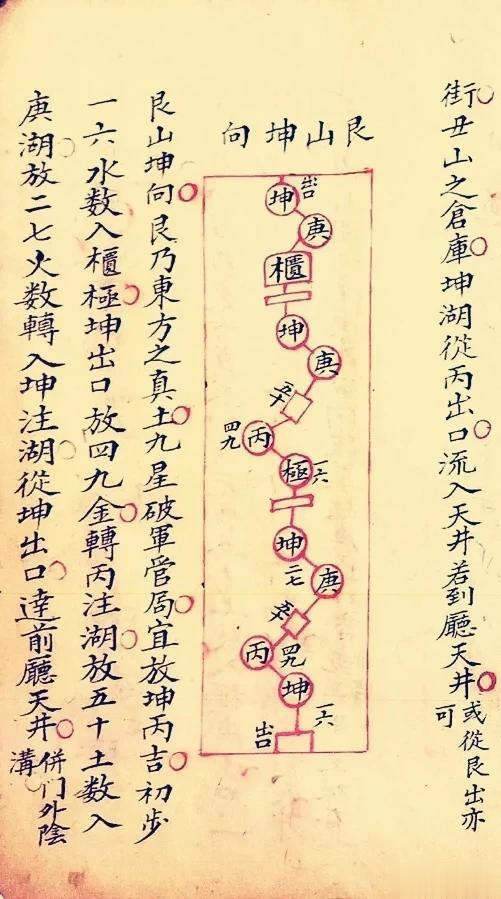 街丑山之倉庫坤湖從丙出口流入天井若到廳天井或從艮出亦可
艮山坤向
出口
坤
庚
櫃
坤
庚
五十
丙
四九
極
一六
坤
二七
庚
五十
丙
四九
坤
一六
出口
艮山坤向艮乃東方之真土九星破軍管局宜放坤丙吉初步
一六水数入櫃極坤出口放四九金轉丙注湖放五十土数入
庚湖放二七火数轉入坤注湖從坤出口達前廳天井併門外陰溝